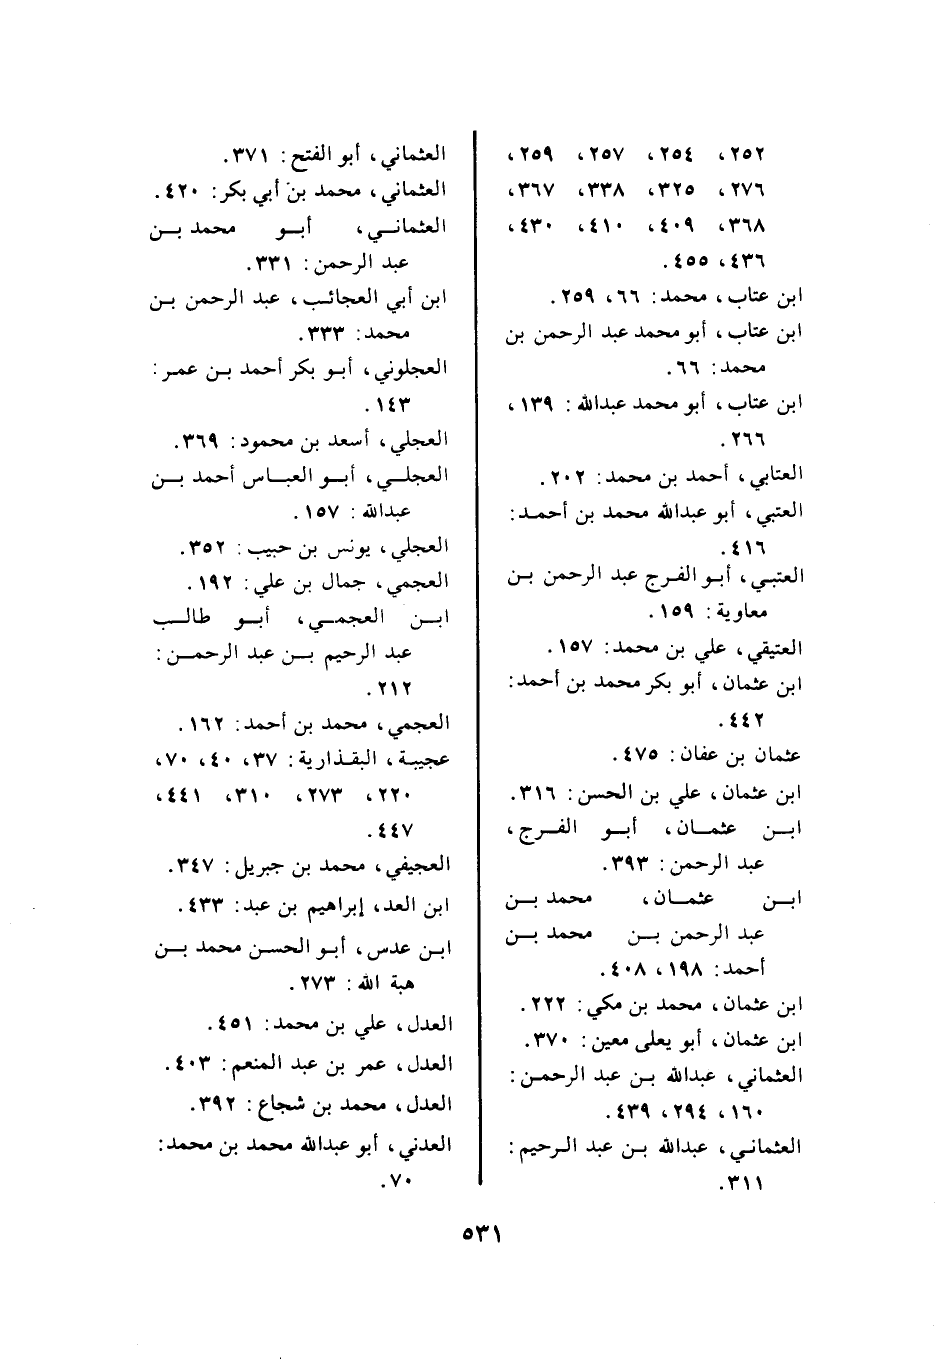 ٢٥٢، ٢٥٤، ٢٥٧، ٢٥٩،
٢٧٦، ٣٢٥، ٣٣٨، ٣٦٧،
٣٦٨، ٤٠٩، ٤١٠، ٤٣٠،
٤٣٦، ٤٥٥.
ابن عتاب، محمد: ٦٦، ٢٥٩.
ابن عتاب، أبو محمد عبد الرحمن بن
محمد: ٦٦.
ابن عتاب، أبو محمد عبدالله: ١٣٩،
٢٦٦.
العتابي، أحمد بن محمد: ٢٠٢.
العتبي، أبو عبدالله محمد بن أحمد:
٤١٦.
العتبي، أبو الفرج عبد الرحمن بن
معاوية: ١٥٩.
العتيقي، علي بن محمد: ١٥٧.
ابن عثمان، أبو بكر محمد بن أحمد:
٤٤٢.
عثمان بن عفان: ٤٧٥.
ابن عثمان، علي بن الحسن: ٣١٦.
ابن عثمان، أبو الفرج،
عبد الرحمن: ٣٩٣.
ابن عثمان، محمد بن
عبد الرحمن بن محمد بن
أحمد: ١٩٨، ٤٠٨.
ابن عثمان، محمد بن مكي: ٢٢٢.
ابن عثمان، أبو يعلى معين: ٣٧٠.
العثماني، عبدالله بن عبد الرحمن:
١٦٠، ٢٩٤، ٤٣٩.
العثماني، عبدالله بن عبد الرحيم:
٣١١.
العثماني، أبو الفتح: ٣٧١.
العثماني، محمد بن أبي بكر: ٤٢٠.
العثماني، أبو محمد بن
عبد الرحمن: ٣٣١.
ابن أبي العجائب، عبد الرحمن بن
محمد: ٣٣٣.
العجلوني، أبو بكر أحمد بن عمر:
١٤٣.
العجلي، أسعد بن محمود: ٣٦٩.
العجلي، أبو العباس أحمد بن
عبدالله: ١٥٧.
العجلي، يونس بن حبيب: ٣٥٢.
العجمي، جمال بن علي: ١٩٢.
ابن العجمي، أبو طالب
عبد الرحيم بن عبد الرحمن:
٢١٢.
العجمي، محمد بن أحمد: ١٦٢.
عجيبة، البقذارية: ٣٧، ٤٠، ٧٠،
٢٢٠، ٢٧٣، ٣١٠، ٤٤١،
٤٤٧.
العجيفي، محمد بن جبريل: ٣٤٧.
ابن العد، إبراهيم بن عبد: ٤٣٣.
ابن عدس، أبو الحسن محمد بن
هبة الله: ٢٧٣.
العدل، علي بن محمد: ٤٥١.
العدل، عمر بن عبد المنعم: ٤٠٣.
العدل، محمد بن شجاع: ٣٩٢.
العدني، أبو عبدالله محمد بن محمد:
٧٠.
٥٣١